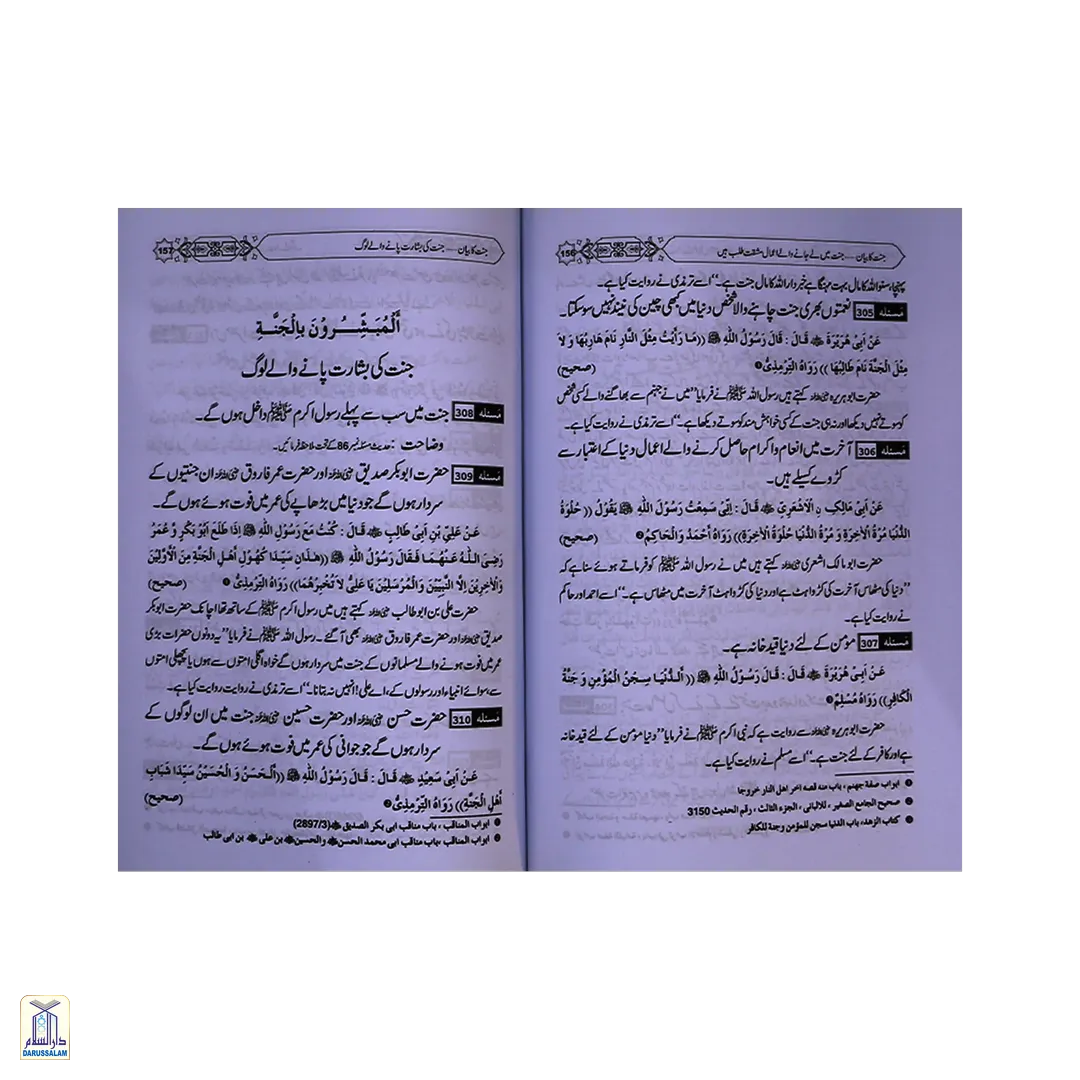 جنت کا بیان ---- جنت میں لے جانے والے اعمال مشقت طلب ہیں
156
پہنچا، سنو اللہ کا مال بہت مہنگا ہے خبردار اللہ کا مال جنت ہے۔‘‘ اسے ترمذی نے روایت کیا ہے۔
مسئلہ 305 نعمتوں بھری جنت چاہنے والا شخص دنیا میں کبھی چین کی نیند نہیں سو سکتا۔
عَنْ اَبِیْ هُرَیْرَةَ ﷺ قَالَ : قَالَ رَسُوْلُ اللهِ ﷺ ((مَا رَاَیْتُ مِثْلَ النَّارِ نَامَ هَارِبُهَا وَ لَا
مِثْلَ الْجَنَّةِ نَامَ طَالِبُهَا )) رَوَاهُ التِّرْمِذِیُّ❶ (صحیح)
حضرت ابو ہریرہ رضی اللہ عنہ کہتے ہیں رسول اللہ ﷺ نے فرمایا ’’میں نے جہنم سے بھاگنے والے کسی شخص
کو سوتے نہیں دیکھا اور نہ ہی جنت کے کسی خواہش مند کو سوتے دیکھا ہے۔‘‘ اسے ترمذی نے روایت کیا ہے۔
مسئلہ 306 آخرت میں انعام و اکرام حاصل کرنے والے اعمال دنیا کے اعتبار سے
کڑوے کسیلے ہیں۔
عَنْ اَبِیْ مَالِکِ نِ الْاَشْعَرِیِّ قَالَ : اِنِّیْ سَمِعْتُ رَسُوْلَ اللهِ ﷺ یَقُوْلُ (( حُلْوَةُ
الدُّنْیَا مُرَّةُ الْآخِرَةِ وَ مُرَّةُ الدُّنْیَا حُلْوَةُ الْآخِرَةِ)) رَوَاهُ اَحْمَدُ وَالْحَاکِمُ❷ (صحیح)
حضرت ابو مالک اشعری رضی اللہ عنہ کہتے ہیں میں نے رسول اللہ ﷺ کو فرماتے ہوئے سنا ہے کہ
’’دنیا کی مٹھاس آخرت کی کڑواہٹ ہے اور دنیا کی کڑواہٹ آخرت میں مٹھاس ہے۔‘‘ اسے احمد اور حاکم
نے روایت کیا ہے۔
مسئلہ 307 مؤمن کے لئے دنیا قید خانہ ہے۔
عَنْ اَبِیْ هُرَیْرَةَ قَالَ : قَالَ رَسُوْلُ اللهِ ﷺ (( اَلدُّنْیَا سِجْنُ الْمُؤْمِنِ وَ جَنَّةُ
الْکَافِرِ)) رَوَاهُ مُسْلِمٌ❸
حضرت ابو ہریرہ رضی اللہ عنہ سے روایت ہے کہ نبی اکرم ﷺ نے فرمایا ’’دنیا مؤمن کے لئے قید خانہ
ہے اور کافر کے لئے جنت ہے۔‘‘ اسے مسلم نے روایت کیا ہے۔
❶ ابواب صفة جهنم ، باب منه قصه اخر اهل النار خروجا
❷ صحیح الجامع الصغیر ، للالبانی ، الجزء الثالث ، رقم الحدیث 3150
❸ کتاب الزهد، باب الدنیا سجن للمؤمن وجنة للکافر
جنت کا بیان ---- جنت کی بشارت پانے والے لوگ
157
اَلْمُبَشَّرُوْنَ بِالْجَنَّةِ
جنت کی بشارت پانے والے لوگ
مسئلہ 308 جنت میں سب سے پہلے رسول اکرم ﷺ داخل ہوں گے۔
وضاحت : حدیث مسئلہ نمبر 86 کے تحت ملاحظہ فرمائیں۔
مسئلہ 309 حضرت ابوبکر صدیق رضی اللہ عنہ اور حضرت عمر فاروق رضی اللہ عنہ ان جنتیوں کے
سردار ہوں گے جو دنیا میں بڑھاپے کی عمر میں فوت ہوئے ہوں گے۔
عَنْ عَلِیِّ بْنِ اَبِیْ طَالِبٍ قَالَ : کُنْتُ مَعَ رَسُوْلِ اللهِ ﷺ اِذَا طَلَعَ اَبُوْ بَکْرٍ وَّ عُمَرُ
رَضِیَ اللهُ عَنْهُمَا فَقَالَ رَسُوْلُ اللهِ ﷺ ((هٰذَانِ سَیِّدَا کُهُوْلِ اَهْلِ الْجَنَّةِ مِنَ الْاَوَّلِیْنَ
وَالْآخِرِیْنَ اِلَّا النَّبِیِّیْنَ وَالْمُرْسَلِیْنَ یَا عَلِیُّ لَا تُخْبِرْهُمَا)) رَوَاهُ التِّرْمِذِیُّ❶ (صحیح)
حضرت علی بن ابو طالب رضی اللہ عنہ کہتے ہیں میں رسول اکرم ﷺ کے ساتھ تھا اچانک حضرت ابوبکر
صدیق رضی اللہ عنہ اور حضرت عمر فاروق رضی اللہ عنہ بھی آ گئے۔ رسول اللہ ﷺ نے فرمایا ’’یہ دونوں حضرات بڑی
عمر میں فوت ہونے والے مسلمانوں کے جنت میں سردار ہوں گے خواہ اگلی امتوں سے ہوں یا پچھلی امتوں
سے سوائے انبیاء اور رسولوں کے، اے علی! انہیں نہ بتانا۔‘‘ اسے ترمذی نے روایت کیا ہے۔
مسئلہ 310 حضرت حسن رضی اللہ عنہ اور حضرت حسین رضی اللہ عنہ جنت میں ان لوگوں کے
سردار ہوں گے جو جوانی کی عمر میں فوت ہوئے ہوں گے۔
عَنْ اَبِیْ سَعِیْدٍ قَالَ : قَالَ رَسُوْلُ اللهِ ﷺ ((اَلْحَسَنُ وَ الْحُسَیْنُ سَیِّدَا شَبَابِ
اَهْلِ الْجَنَّةِ)) رَوَاهُ التِّرْمِذِیُّ❷ (صحیح)
❶ ابواب المناقب ، باب مناقب ابی بکر الصدیق (2897/3)
❷ ابواب المناقب ، باب مناقب ابی محمد الحسن والحسین بن علی بن ابی طالب
دارالسلام
DARUSSALAM